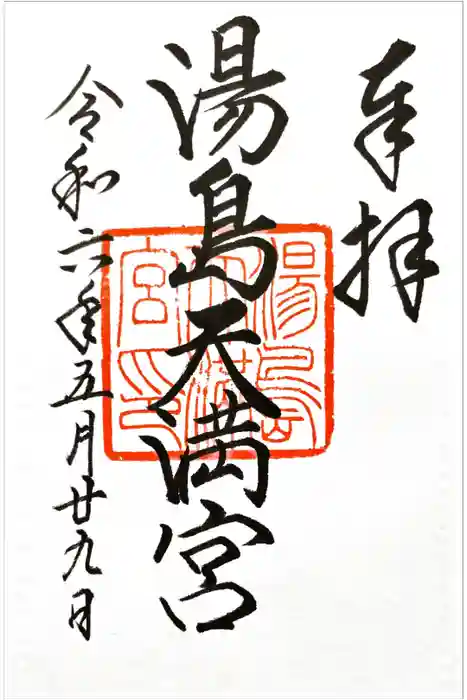 奉拝
湯島天満宮
令和六年五月廿九日
湯島
天満
宮印